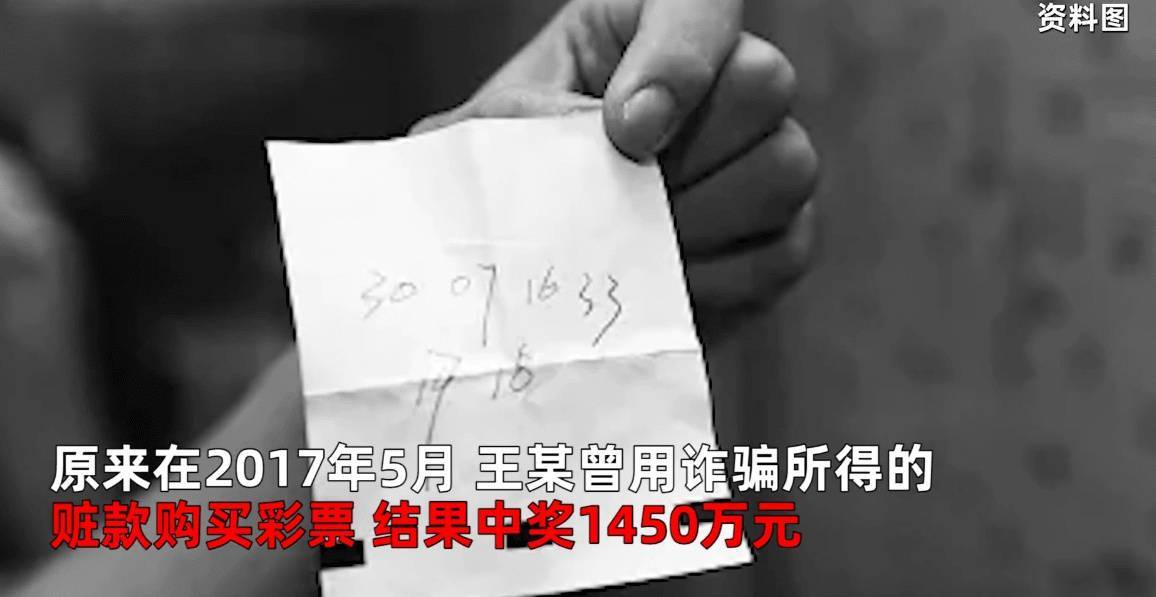 资料图
30 07 16 33
17 16
原来在2017年5月 王某曾用诈骗所得的
赃款购买彩票 结果中奖1450万元